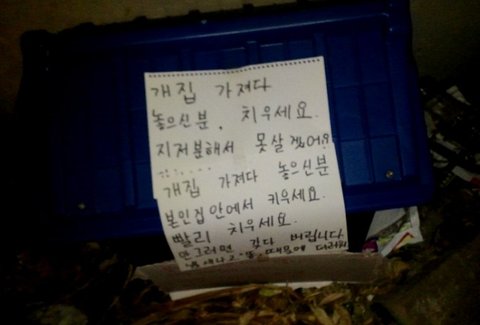 개집 가져다
놓으신분. 치우세요.
지저분해서 못살겠어요
개집 가져다 놓으신분
본인집안에서 키우세요.
빨리 치우세요.
안그러면 갖다 버립니다
때문에